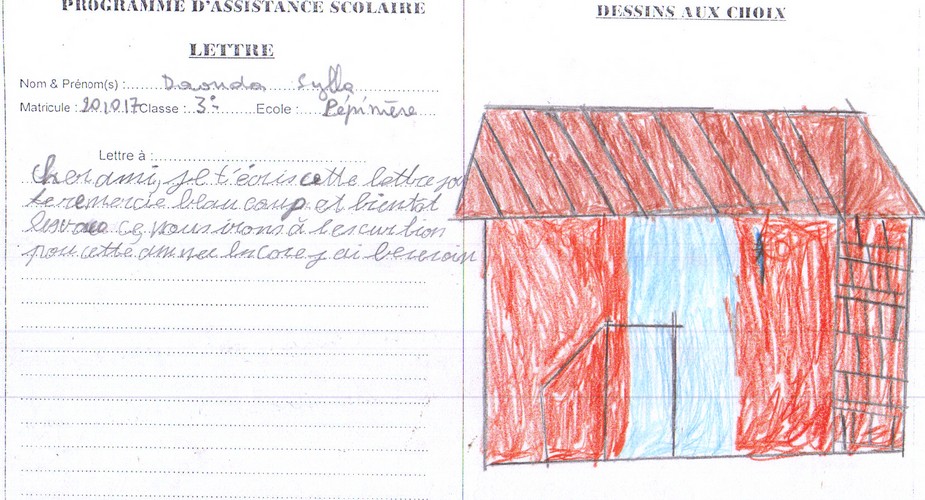 PROGRAMME D'ASSISTANCE SCOLAIRE
LETTRE
Nom & Prénom(s) : Daouda Sylla
Matricule : 201017 Classe : 3è Ecole : Pépinière
Lettre à :
Cher ami, je t'écris cette lettre
te remercie beaucoup et bientôt
nous irons à l'escurtion
pou cette année encore j'ai
DESSINS AUX CHOIX